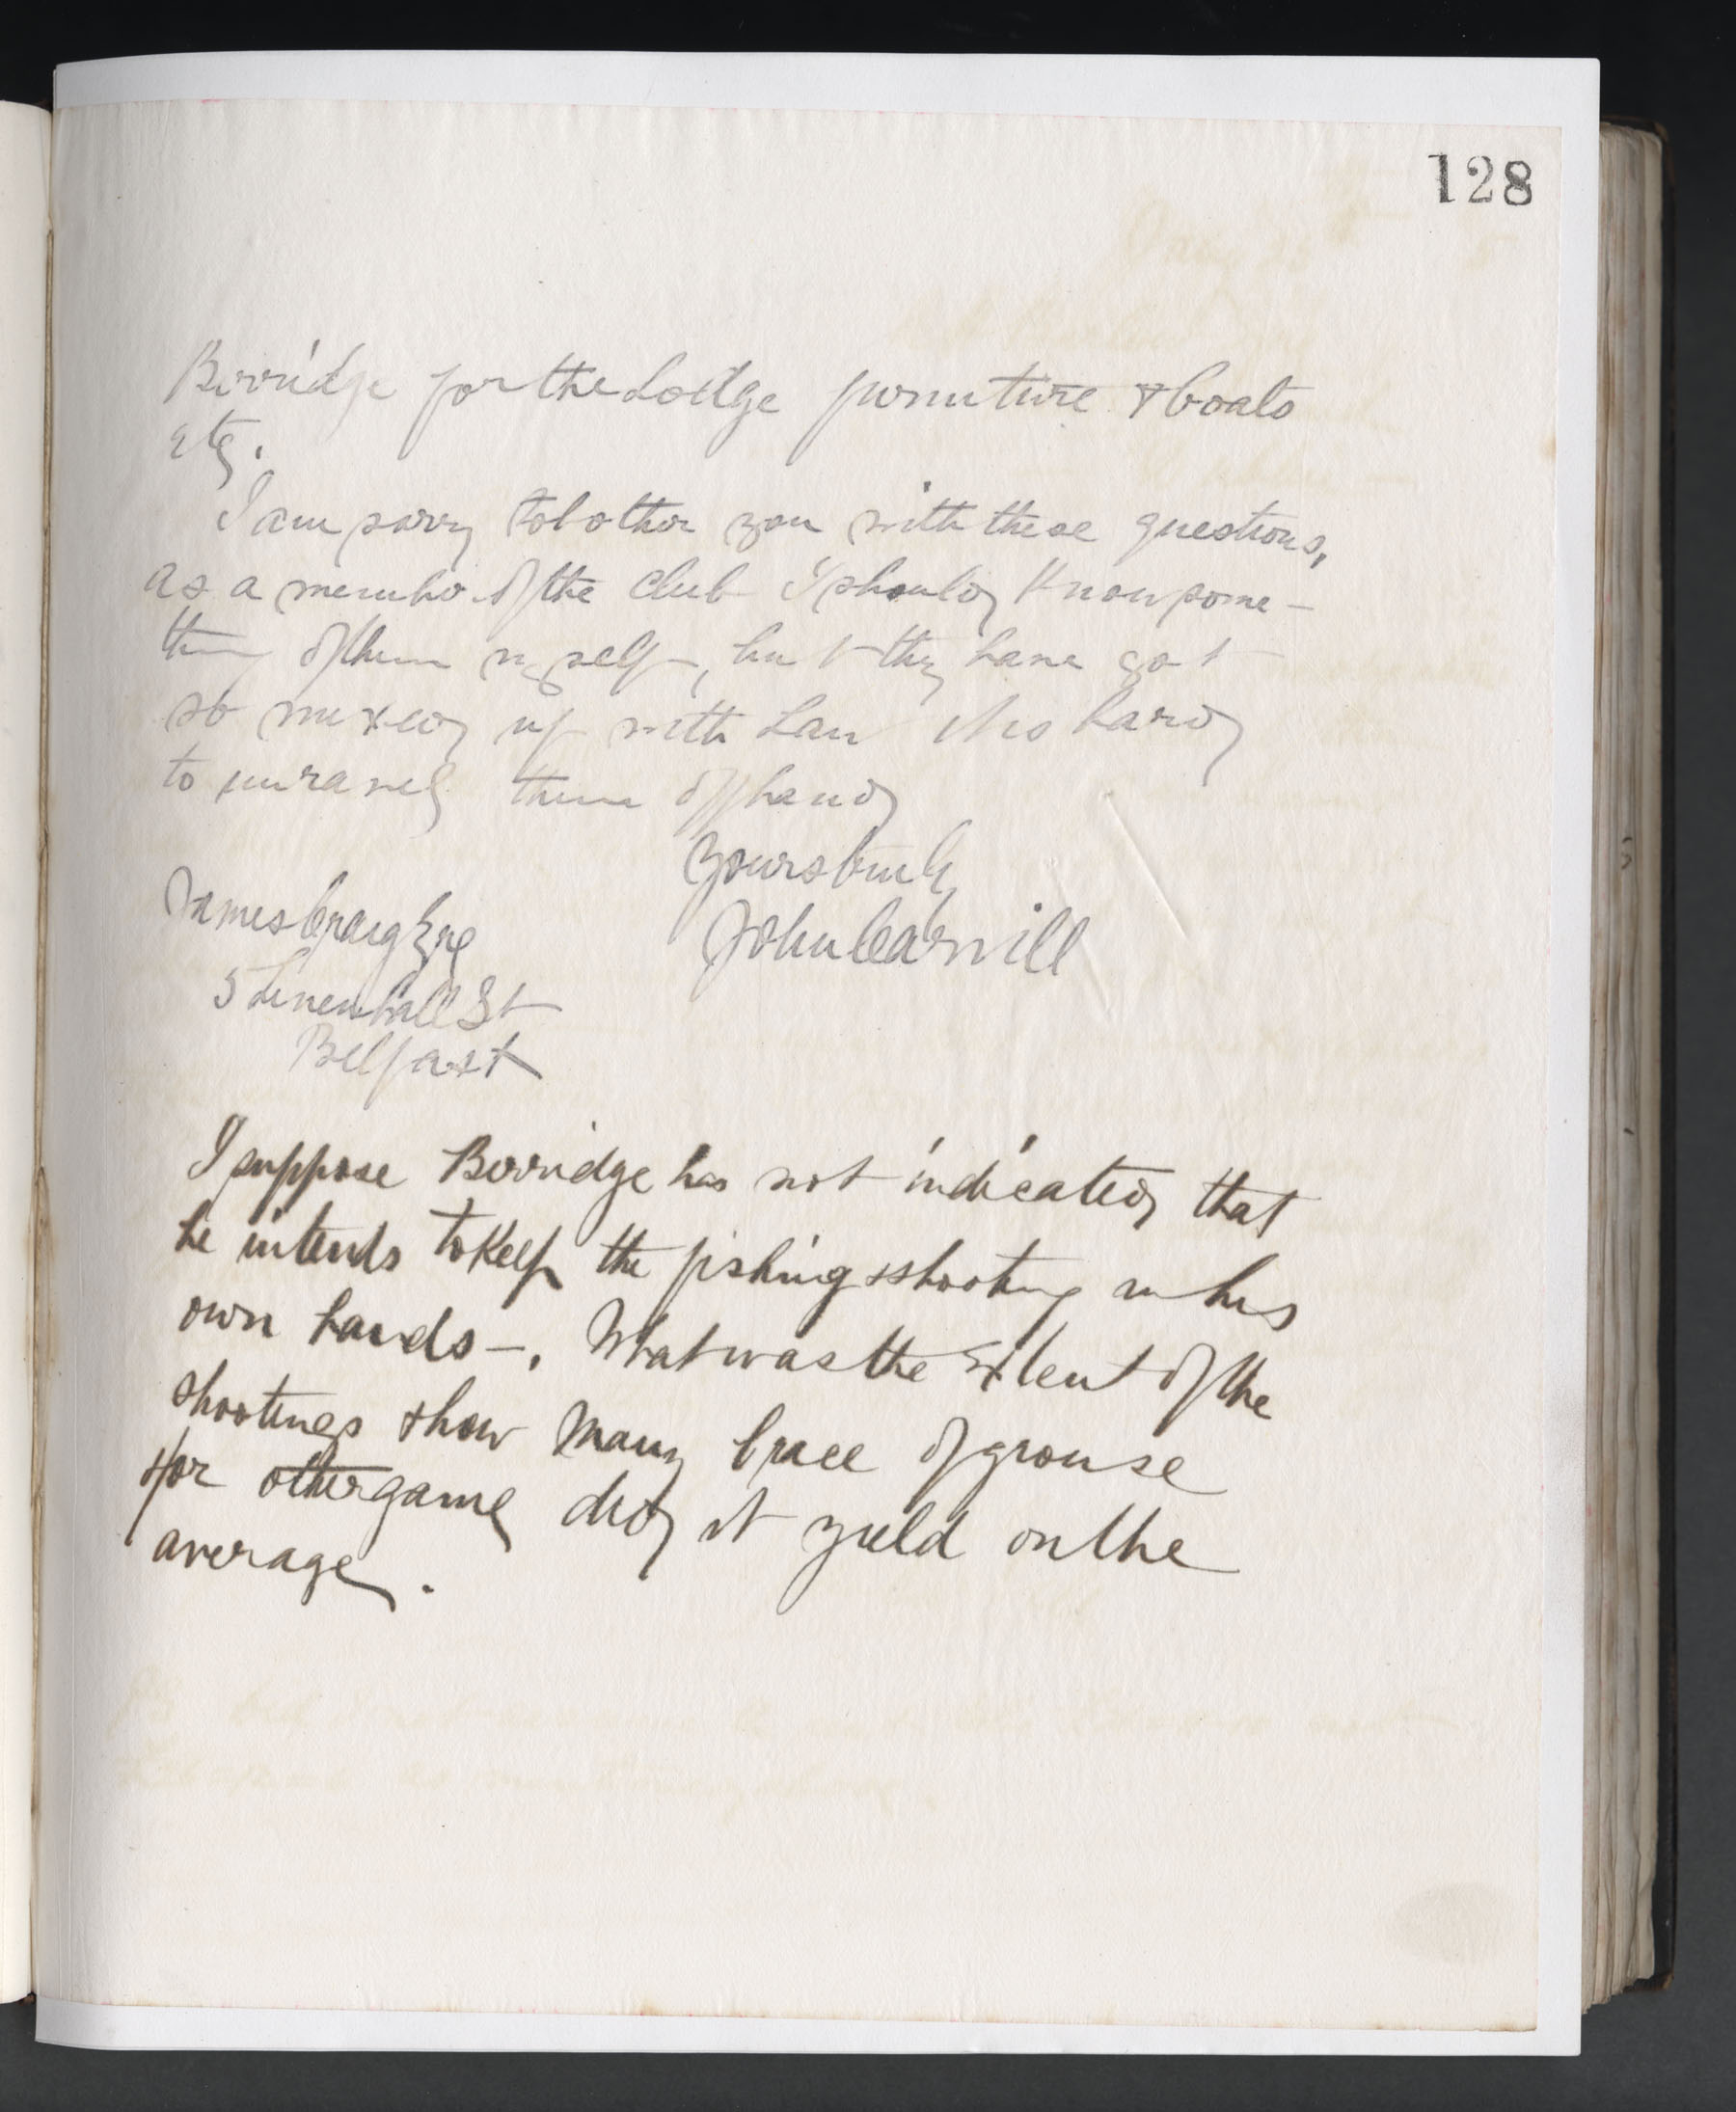 128
Berridge for the Lodge furniture & boats
etc.
I am sorry to bother you with these questions,
as a member of the Club I should know some-
thing of them myself, but they have got
so mixed up with Law it is hard
to unravel them offhand
Yours truly
John Carvill
James Craig Esq
5 Linenhall St
Belfast
I suppose Berridge has not indicated that
he intends to keep the fishing & shooting in his
own hands -. What was the extent of the
shootings & how many brace of grouse
&/or other game did it yield on the
average.